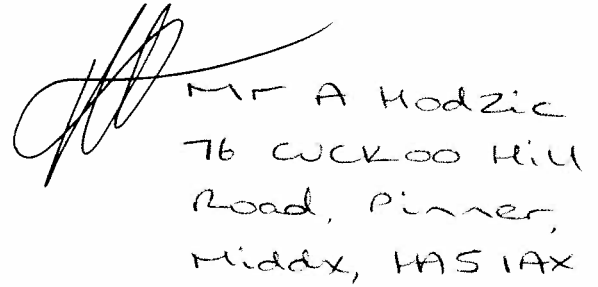 Mr A Hodzic
76 Cuckoo Hill
Road, Pinner,
Middx, HA5 1AX